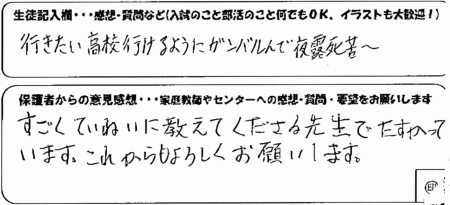 生徒記入欄・・・感想・質問など(入試のこと部活のこと何でもOK、イラストも大歓迎！)
行きたい高校行けるようにガンバルんで夜露死苦～
保護者からの意見感想・・・家庭教師やセンターへの感想・質問・要望をお願いします
すごくていねいに教えてくださる先生でたすかって
います。これからもよろしくお願いします。
印